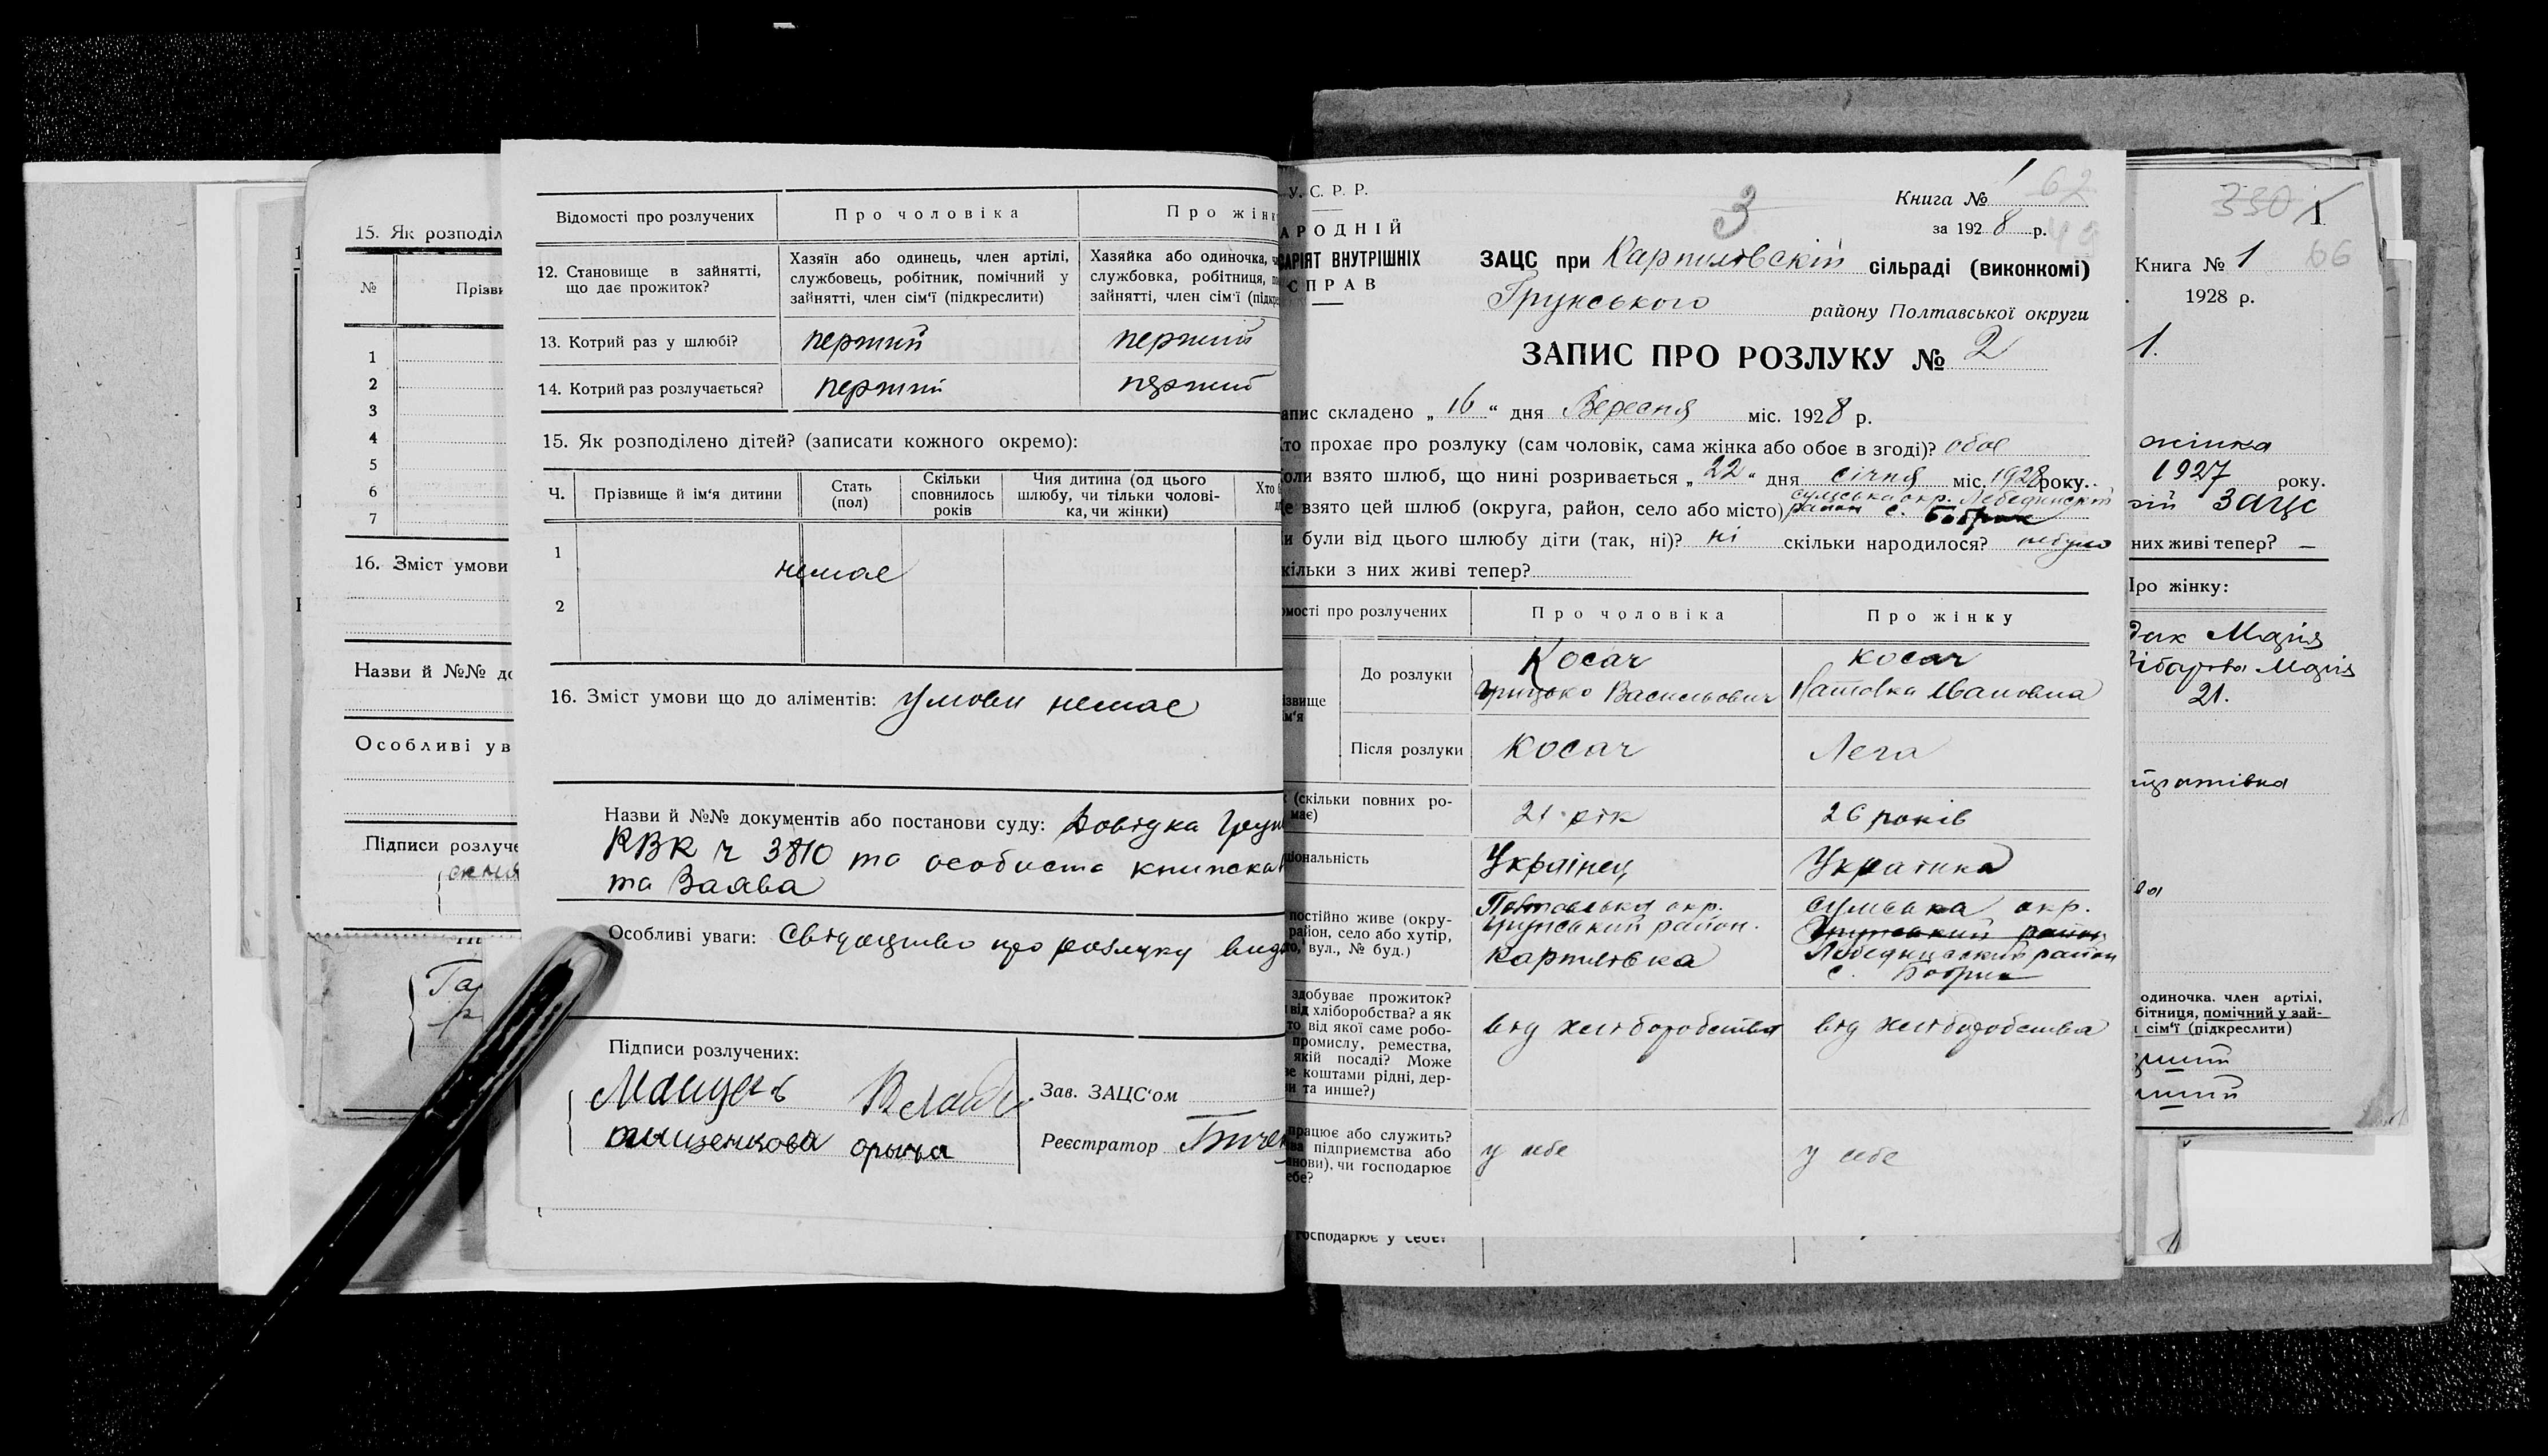 15. Як розподіл
№
Прізви
1
2
3
4
5
6
7
16. Зміст умови
Назви й №№ до
Особливі ув
Підписи розлуче
Відомості про розлучених
Про чоловіка
Про жінк
12. Становище в зайнятті,
що дає прожиток?
Хазяїн або одинець, член артілі,
службовець, робітник, помічний у
зайнятті, член сім'ї (підкреслити)
Хазяйка або одиночка,
службовка, робітниця,
зайнятті, член сім'ї
13. Котрий раз у шлюбі?
перший
перший
14. Котрий раз розлучається?
перший
перший
15. Як розподілено дітей? (записати кожного окремо):
Ч.
Прізвище й ім'я дитини
Стать
(пол)
Скільки
сповнилось
років
Чия дитина (од цього
шлюбу, чи тільки чолові-
ка, чи жінки)
1
немає
2
16. Зміст умови що до аліментів: умови немає
Назви й №№ документів або постанови суду: Довідка Грун
РВК ч 3810 та особиста книжка
та Заява
Особливі уваги: Свідоцтво про розлуку вида
Підписи розлучених:
Зав. ЗАЦС'ом
Реєстратор
У. С. Р. Р.
АРОДНІЙ
САРІЯТ ВНУТРІШНІХ
СПРАВ
3
Книга № 1
62
за 1928 р.
ЗАЦС при Карпилівскій сільраді (виконкомі)
Грунського району Полтавської округи
ЗАПИС ПРО РОЗЛУКУ № 2
апис складено „16“ дня Вересня міс. 1928 р.
то прохає про розлуку (сам чоловік, сама жінка або обоє в згоді)? обоє
оли взято шлюб, що нині розривається „22“ дня січня міс. 1928 року.
сумська окр. Лебединский
е взято цей шлюб (округа, район, село або місто) район с. Бобрик
и були від цього шлюбу діти (так, ні)? ні скільки народилося? небуло
кільки з них живі тепер?
омості про розлучених
Про чоловіка
Про жінку
ізвище
м'я
До розлуки
Косач
Грицько Васильович
Косач
Івановна
Після розлуки
Косач
Лега
(скільки повних ро-
має)
21 рік
26 років
ціональність
Українец
Українка
постійно живе (окру-
район, село або хутір,
то, вул., № буд.)
Полтавська окр.
Грунський район.
Карпилівка
сумська окр.
Грунський район
Лебединський район
с. Бобрик
здобуває прожиток?
від хліборобства? а як
то від якої саме робо-
промислу, ремества,
якій посаді? Може
е коштами рідні, дер-
и та инше?)
від хліборобства
від хліборобства
працює або служить?
ва підприємства або
анови), чи господарює
ебе?
у себе
у себе
господарює у себе?
330 1
66
Книга № 1
1928 р.
1.
жінка
1927 року.
ЗАЦС
них живі тепер? —
Про жінку:
Марія
Марія
21.
одиночка. член артілі,
бітниця, помічний у зай-
сім'ї (підкреслити)